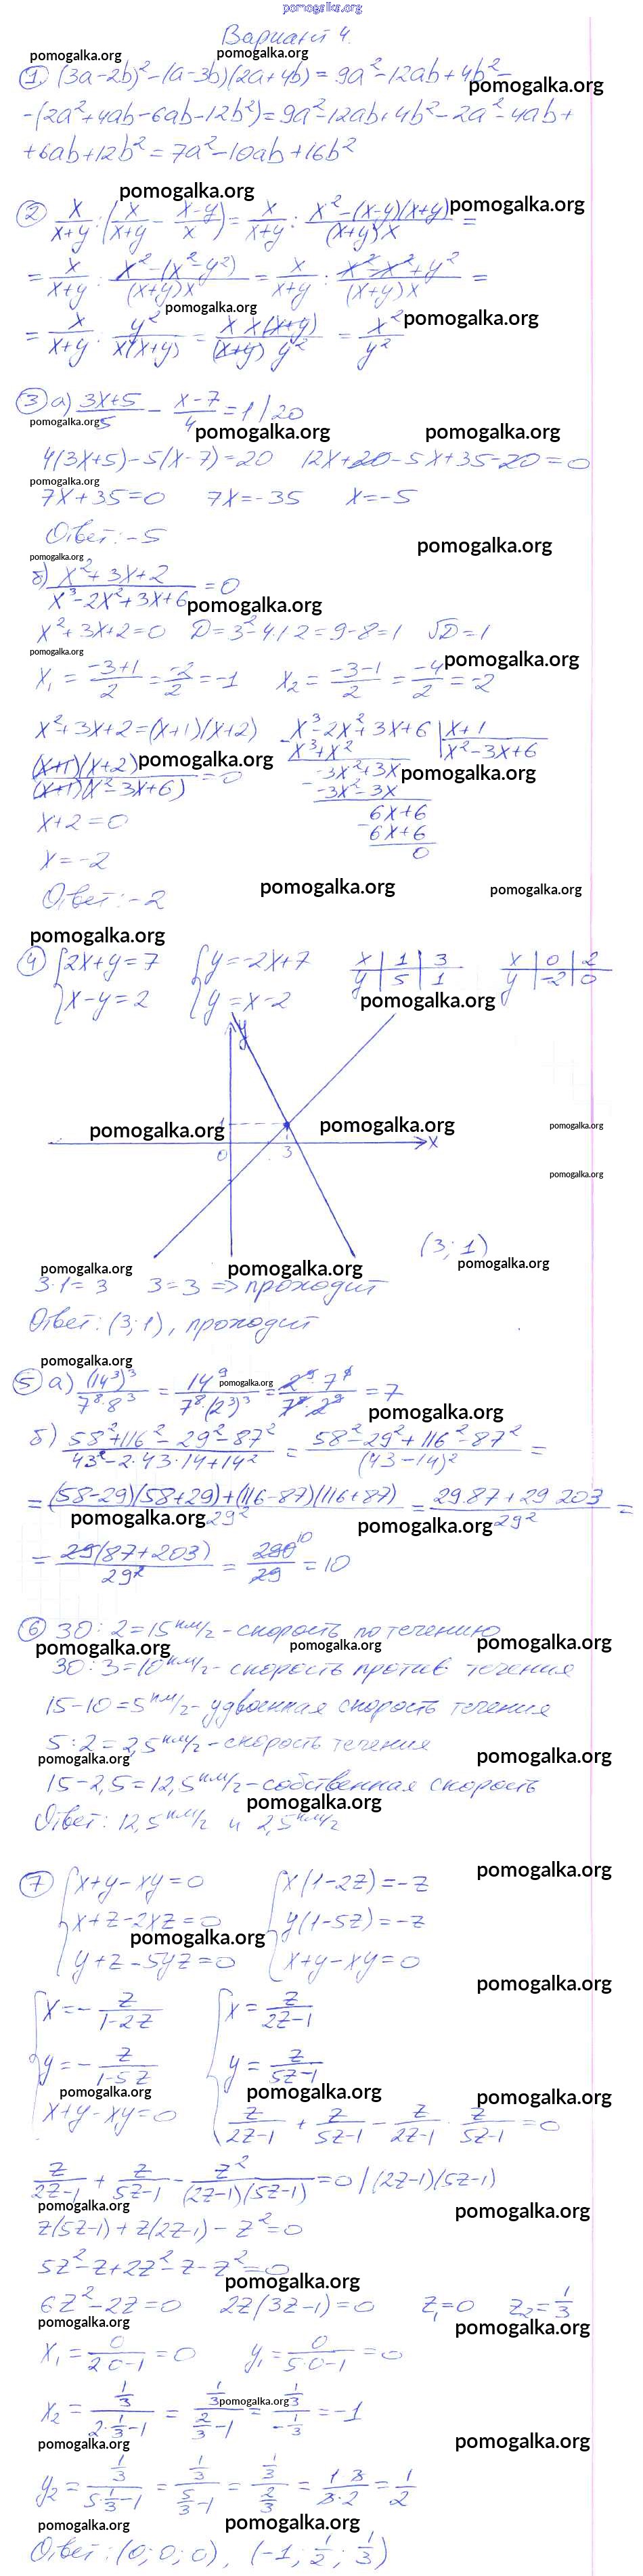 pomogalka.org
Вариант 4.
pomogalka.org pomogalka.org
① (3a-2b)² - (a-3b)(2a+4b) = 9a² - 12ab + 4b² -
pomogalka.org
-(2a²+4ab-6ab-12b²) = 9a²-12ab+4b²-2a²-4ab+
+6ab+12b² = 7a²-10ab+16b²
pomogalka.org pomogalka.org
② x/(x+y) : (x/(x+y) - (x-y)/x) = x/(x+y) : (x²-(x-y)(x+y))/((x+y)x) =
= x/(x+y) : (x²-(x²-y²))/((x+y)x) = x/(x+y) : (x²-x²+y²)/((x+y)x) =
pomogalka.org pomogalka.org
= x/(x+y) : y²/(x(x+y)) = (x·x(x+y))/((x+y)y²) = x²/y²
③ а) (3x+5)/5 - (x-7)/4 = 1 | 20
pomogalka.org pomogalka.org pomogalka.org
4(3x+5)-5(x-7)=20 12x+20-5x+35-20=0
pomogalka.org
7x+35=0 7x=-35 x=-5
Ответ: -5
pomogalka.org
pomogalka.org
б) (x²+3x+2)/(x³-2x²+3x+6) = 0
pomogalka.org
x²+3x+2=0 D=3²-4·1·2=9-8=1 √D=1
pomogalka.org pomogalka.org
x₁ = (-3+1)/2 = -2/2 = -1 x₂ = (-3-1)/2 = -4/2 = -2
x²+3x+2=(x+1)(x+2) x³-2x²+3x+6 | x+1
x³+x² x²-3x+6
(x+1)(x+2)/((x+1)(x²-3x+6)) = 0 -3x²+3x
pomogalka.org pomogalka.org
-3x²-3x
x+2=0 6x+6
6x+6
0
x=-2
Ответ: -2
pomogalka.org pomogalka.org
pomogalka.org
④ {2x+y=7 {y=-2x+7 x | 1 | 3 x | 0 | 2
{x-y=2 {y=x-2 y | 5 | 1 y | -2 | 0
pomogalka.org
y
1
pomogalka.org pomogalka.org pomogalka.org
0 3 x
pomogalka.org
(3; 1)
pomogalka.org pomogalka.org pomogalka.org
3·1=3 3=3 => проходит
Ответ: (3; 1), проходит
pomogalka.org
⑤ а) (14³)³/(7⁸·8³) = 14⁹/(7⁸·(2³)³) = 2⁹·7⁹/(7⁸·2⁹) = 7
pomogalka.org pomogalka.org
б) (58²+116²-29²-87²)/(43²-2·43·14+14²) = (58²-29²+116²-87²)/(43-14)² =
= ((58-29)(58+29)+(116-87)(116+87))/29² = (29·87+29·203)/29² =
pomogalka.org pomogalka.org
= 29(87+203)/29² = 290/29 = 10
⑥ 30 : 2 = 15 км/ч - скорость по течению
pomogalka.org pomogalka.org pomogalka.org
30 : 3 = 10 км/ч - скорость против течения
15-10=5 км/ч - удвоенная скорость течения
5 : 2 = 2,5 км/ч - скорость течения
pomogalka.org pomogalka.org
15-2,5=12,5 км/ч - собственная скорость
pomogalka.org
Ответ: 12,5 км/ч и 2,5 км/ч
pomogalka.org
⑦ {x+y-xy=0 {x(1-2z)=-z
{x+z-2xz=0 {y(1-5z)=-z
pomogalka.org
{y+z-5yz=0 {x+y-xy=0
pomogalka.org
{x = - z/(1-2z) {x = z/(2z-1)
{y = - z/(1-5z) {y = z/(5z-1)
pomogalka.org pomogalka.org pomogalka.org
{x+y-xy=0 {z/(2z-1) + z/(5z-1) - z/(2z-1) · z/(5z-1) = 0
z/(2z-1) + z/(5z-1) - z²/((2z-1)(5z-1)) = 0 | (2z-1)(5z-1)
pomogalka.org pomogalka.org
z(5z-1)+z(2z-1)-z²=0
5z²-z+2z²-z-z²=0
pomogalka.org
6z²-2z=0 2z(3z-1)=0 z₁=0 z₂=1/3
pomogalka.org pomogalka.org
x₁ = 0/(2·0-1) = 0 y₁ = 0/(5·0-1) = 0
pomogalka.org
x₂ = (1/3)/(2·1/3-1) = (1/3)/(2/3-1) = (1/3)/(-1/3) = -1
pomogalka.org pomogalka.org
y₂ = (1/3)/(5·1/3-1) = (1/3)/(5/3-1) = (1/3)/(2/3) = 1·3/(3·2) = 1/2
pomogalka.org pomogalka.org pomogalka.org
Ответ: (0; 0; 0), (-1; 1/2; 1/3)